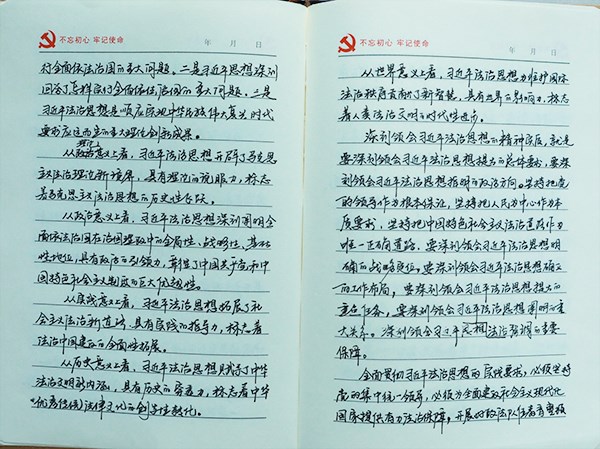 不忘初心 牢记使命
年 月 日
行全面依法治国的重大问题。二是习近平思想深刻
回答了怎样实行全面依法治国的重大问题。三是
习近平法治思想是顺应实现中华民族伟大复兴时代
要求应运而生的重大理论创新成果。
从理论意义上看，习近平法治思想开辟了马克思
主义法治理论新境界，具有理论的说服力，标志
着马克思主义法治思想的历史性飞跃。
从政治意义上看，习近平法治思想深刻阐明全
面依法治国在治国理政中的全局性、战略性、基础
性地位，具有政治的引领力，彰显了中国共产党和中
国特色社会主义制度的巨大优越性。
从实践意义上看，习近平法治思想拓展了社
会主义法治新道路，具有实践的指导力，标志着
法治中国建设的全面性拓展。
从历史意义上看，习近平法治思想赋予了中华
法治文明新内涵，具有历史的穿透力，标志着中华
优秀传统法律文化的创造性转化。
不忘初心 牢记使命
年 月 日
从世界意义上看，习近平法治思想为维护国际
法治秩序贡献了新智慧，具有世界的影响力，标志
着人类法治文明的时代性进步。
深刻领会习近平法治思想的精神实质，就是
要深刻领会习近平法治思想提出的总体要求，要深
刻领会习近平法治思想指明的政治方向。坚持把党
的领导作为根本保证，坚持把以人民为中心作为本
质要求，坚持把中国特色社会主义法治道路作为
唯一正确道路。要深刻领会习近平法治思想明
确的战略地位。要深刻领会习近平法治思想确立
的工作布局，要深刻领会习近平法治思想提出的
重点任务，要深刻领会习近平法治思想阐明的重
大关系。深刻领会习近平思想法治强调的重要
保障。
全面贯彻习近平法治思想的实践要求，必须坚持
党的集中统一领导，必须为全面建设社会主义现代化
国家提供有力法治保障，开展好政法队伍教育整顿